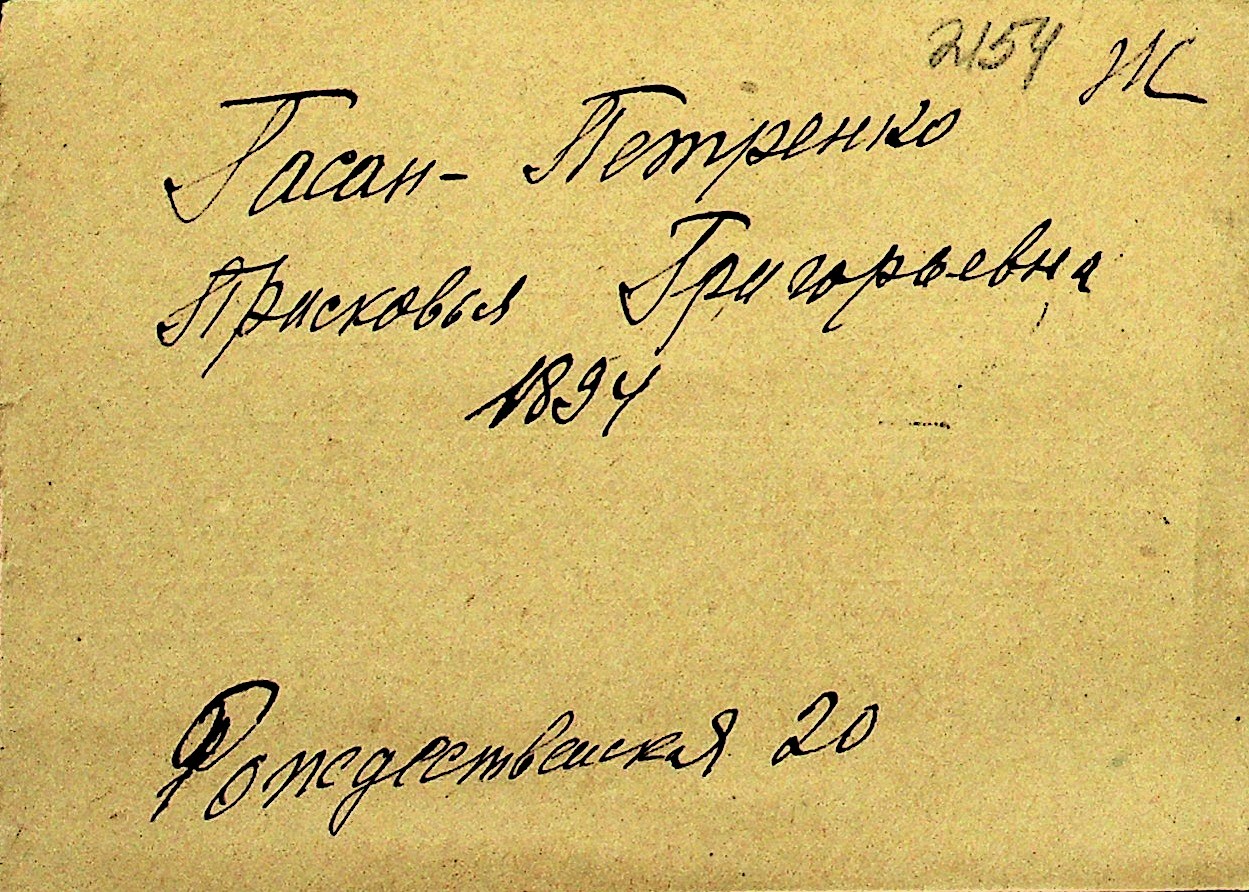 2154 Ж
Гасан- Петренко
Прасковья Григорьевна
1894
Рождественская 20